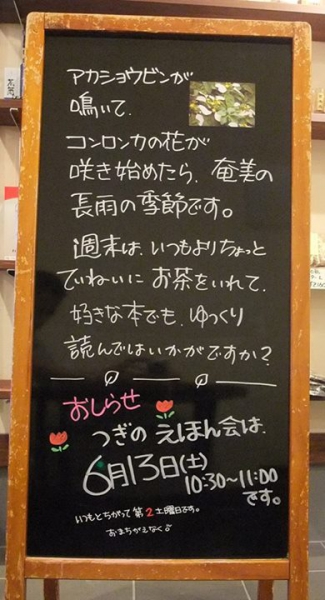 アカショウビンが
鳴いて、
コンロンカの花が
咲き始めたら、奄美の
長雨の季節です。
週末は、いつもよりちょっと
ていねいに お茶をいれて、
好きな本でも、ゆっくり
読んではいかがですか？
おしらせ
つぎの えほん会は、
6月13日(土)
10:30~11:00
です。
いつもとちがって 第2土曜日です。
おまちがえなく♪